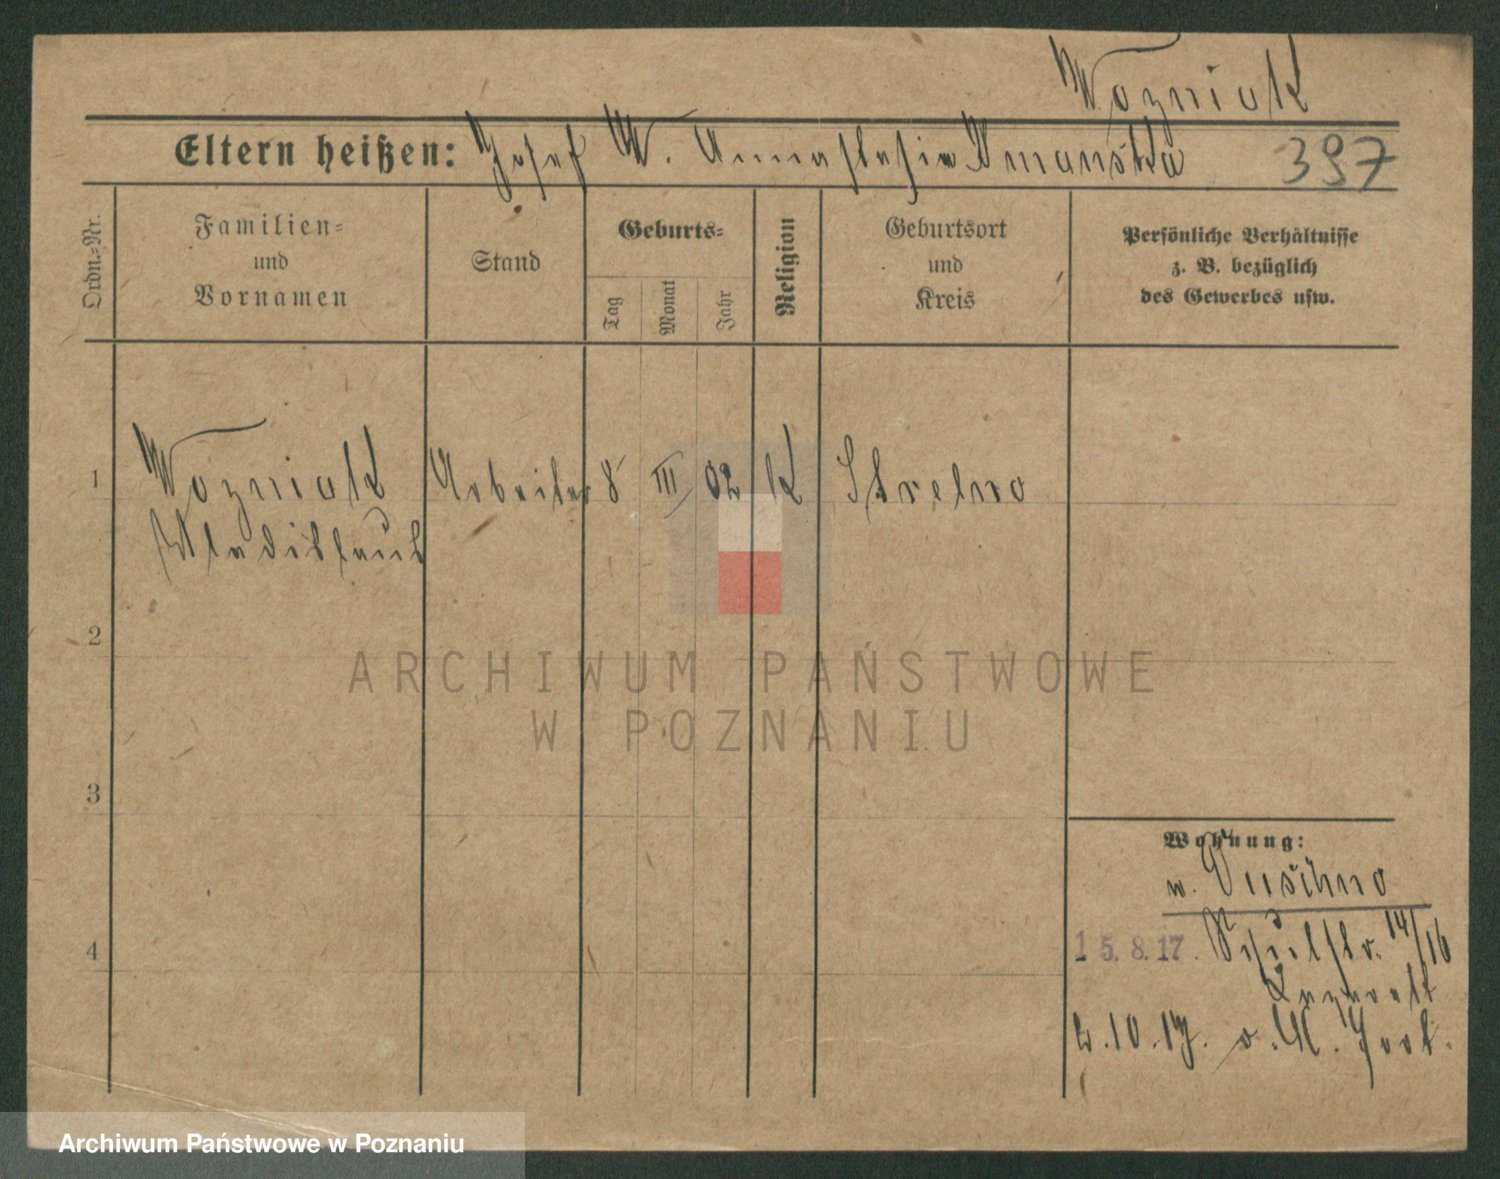 Wozniak
Eltern heißen: Josef W. Annastasia Umanska 397
Ordn.-Nr.
Familien-
und
Vornamen
Stand
Geburts-
Tag
Monat
Jahr
Religion
Geburtsort
und
Kreis
Persönliche Verhältnisse
z. B. bezüglich
des Gewerbes usw.
1 Wozniak Arbeiter 8 III 02 K Strelno
Wladislaus
2
ARCHIWUM PAŃSTWOWE
W POZNANIU
3
Wohnung:
w. Duschno
15.8.17. Schulstr. 14/16
Lazarett
2.10.17. o.
4
Archiwum Państwowe w Poznaniu